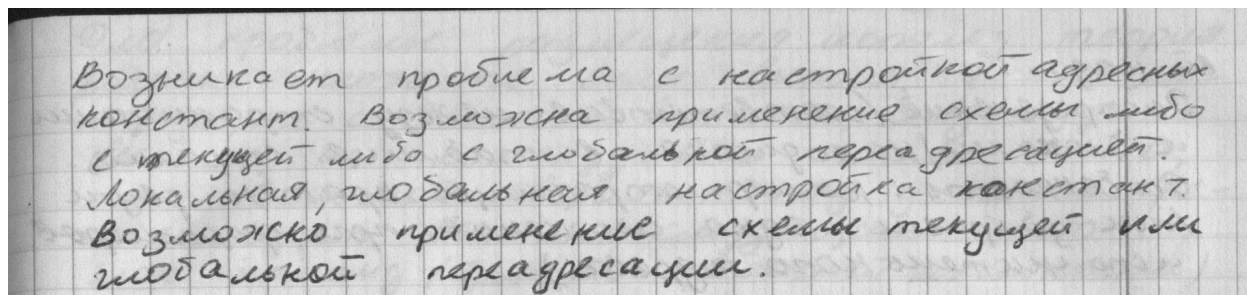 Возникает проблема с настройкой адресных
констант. Возможна применение схемы либо
с текущей либо с глобальной переадресацией.
Локальная, глобальная настройка констант.
Возможно применение схемы текущей или
глобальной переадресации.